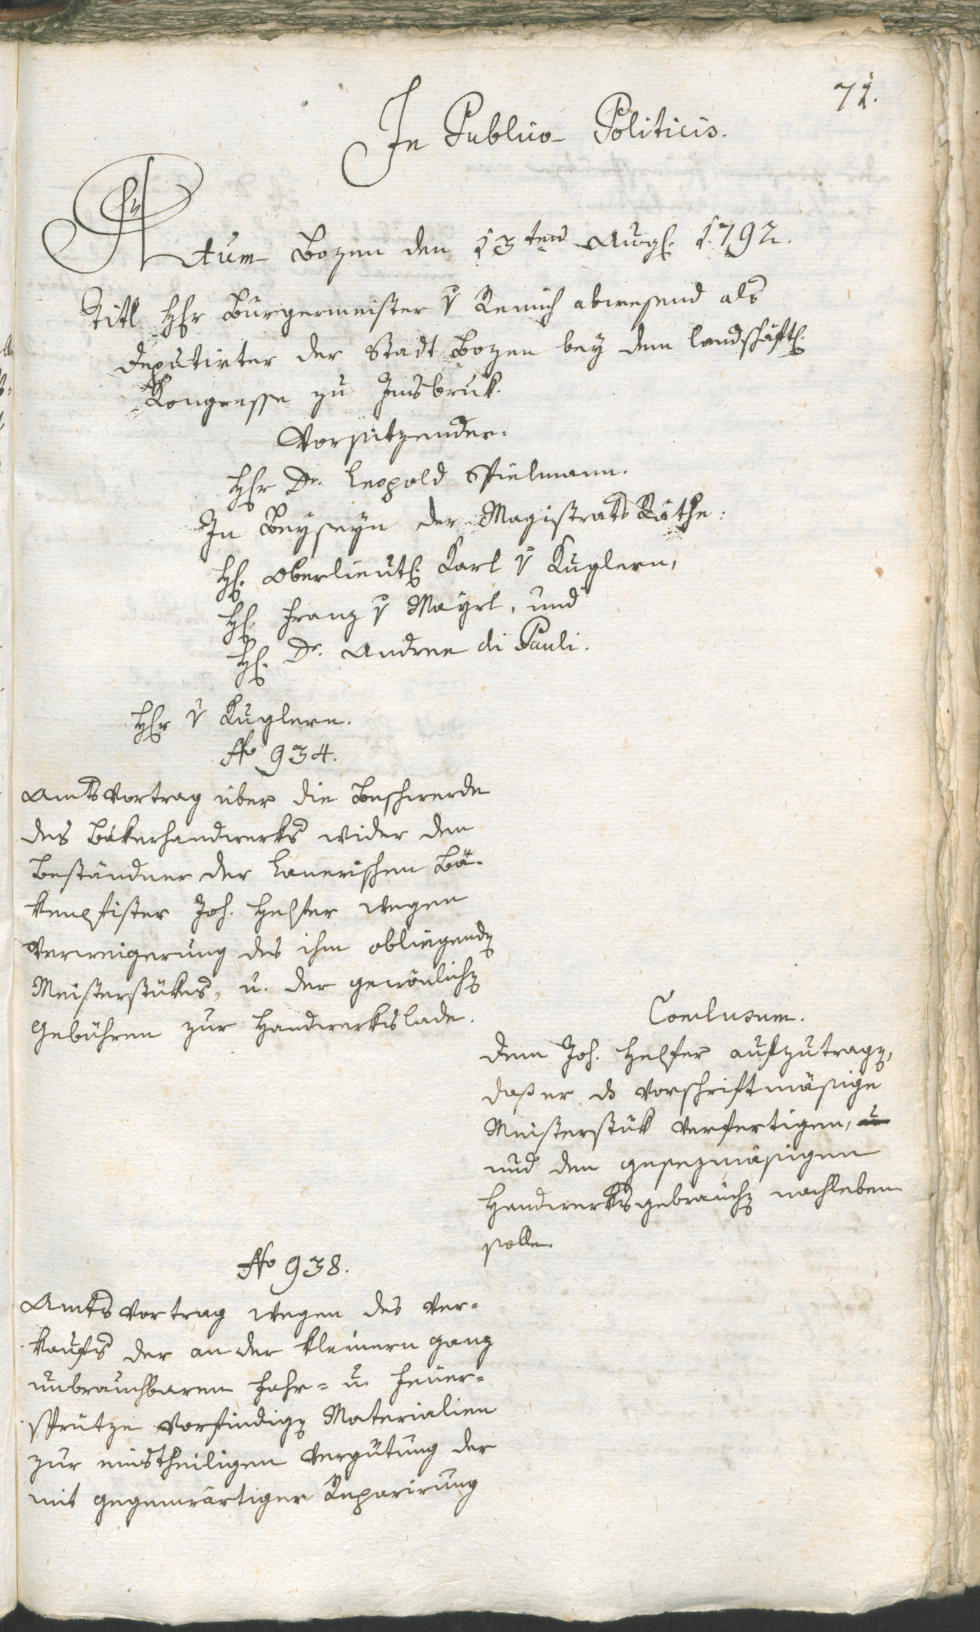 71.
In Publico Politicis.
Actum Bozen den 13ten Augs. 1792.
Titl Hr Bürgermeister v Remich abwesend als
deputirter der Stadt Bozen bey dem landschäftl.
Kongresse zu Insbruk.
Vorsitzender.
Hr Dr. Leopold Spielmann.
In Beyseyn der Magistrats Räthe:
H. Oberlieut. Karl v Kuglern,
H. Franz v Mayrl, und
H. Dr. Andree di Pauli.
Hr v Kuglern.
No 934.
Amts Vortrag über die Beschwerde
des Bäkerhandwerks wider den
Beständner der Lanerischen Bä-
kenpfister Joh. Helfer wegen
Verweigerung des ihm obliegenden
Meisterstükes, u. der gewönlichen
Gebühren zur Handwerkslade.
Conclusum.
dem Joh. Helfer aufzutragen,
daß er ds vorschriftmäsige
Meisterstük verfertigen, u
und den gesezmäsigen
Handwerksgebräuchen nachleben
solle.
No 938.
Amts Vortrag wegen des Ver-
kaufs der an der kleinern ganz
unbrauchbaren Fahr- u. Feuer-
sprütze vorfindigen Materialien
zur einstheiligen Vergütung der
mit gegenwärtiger Reparirung